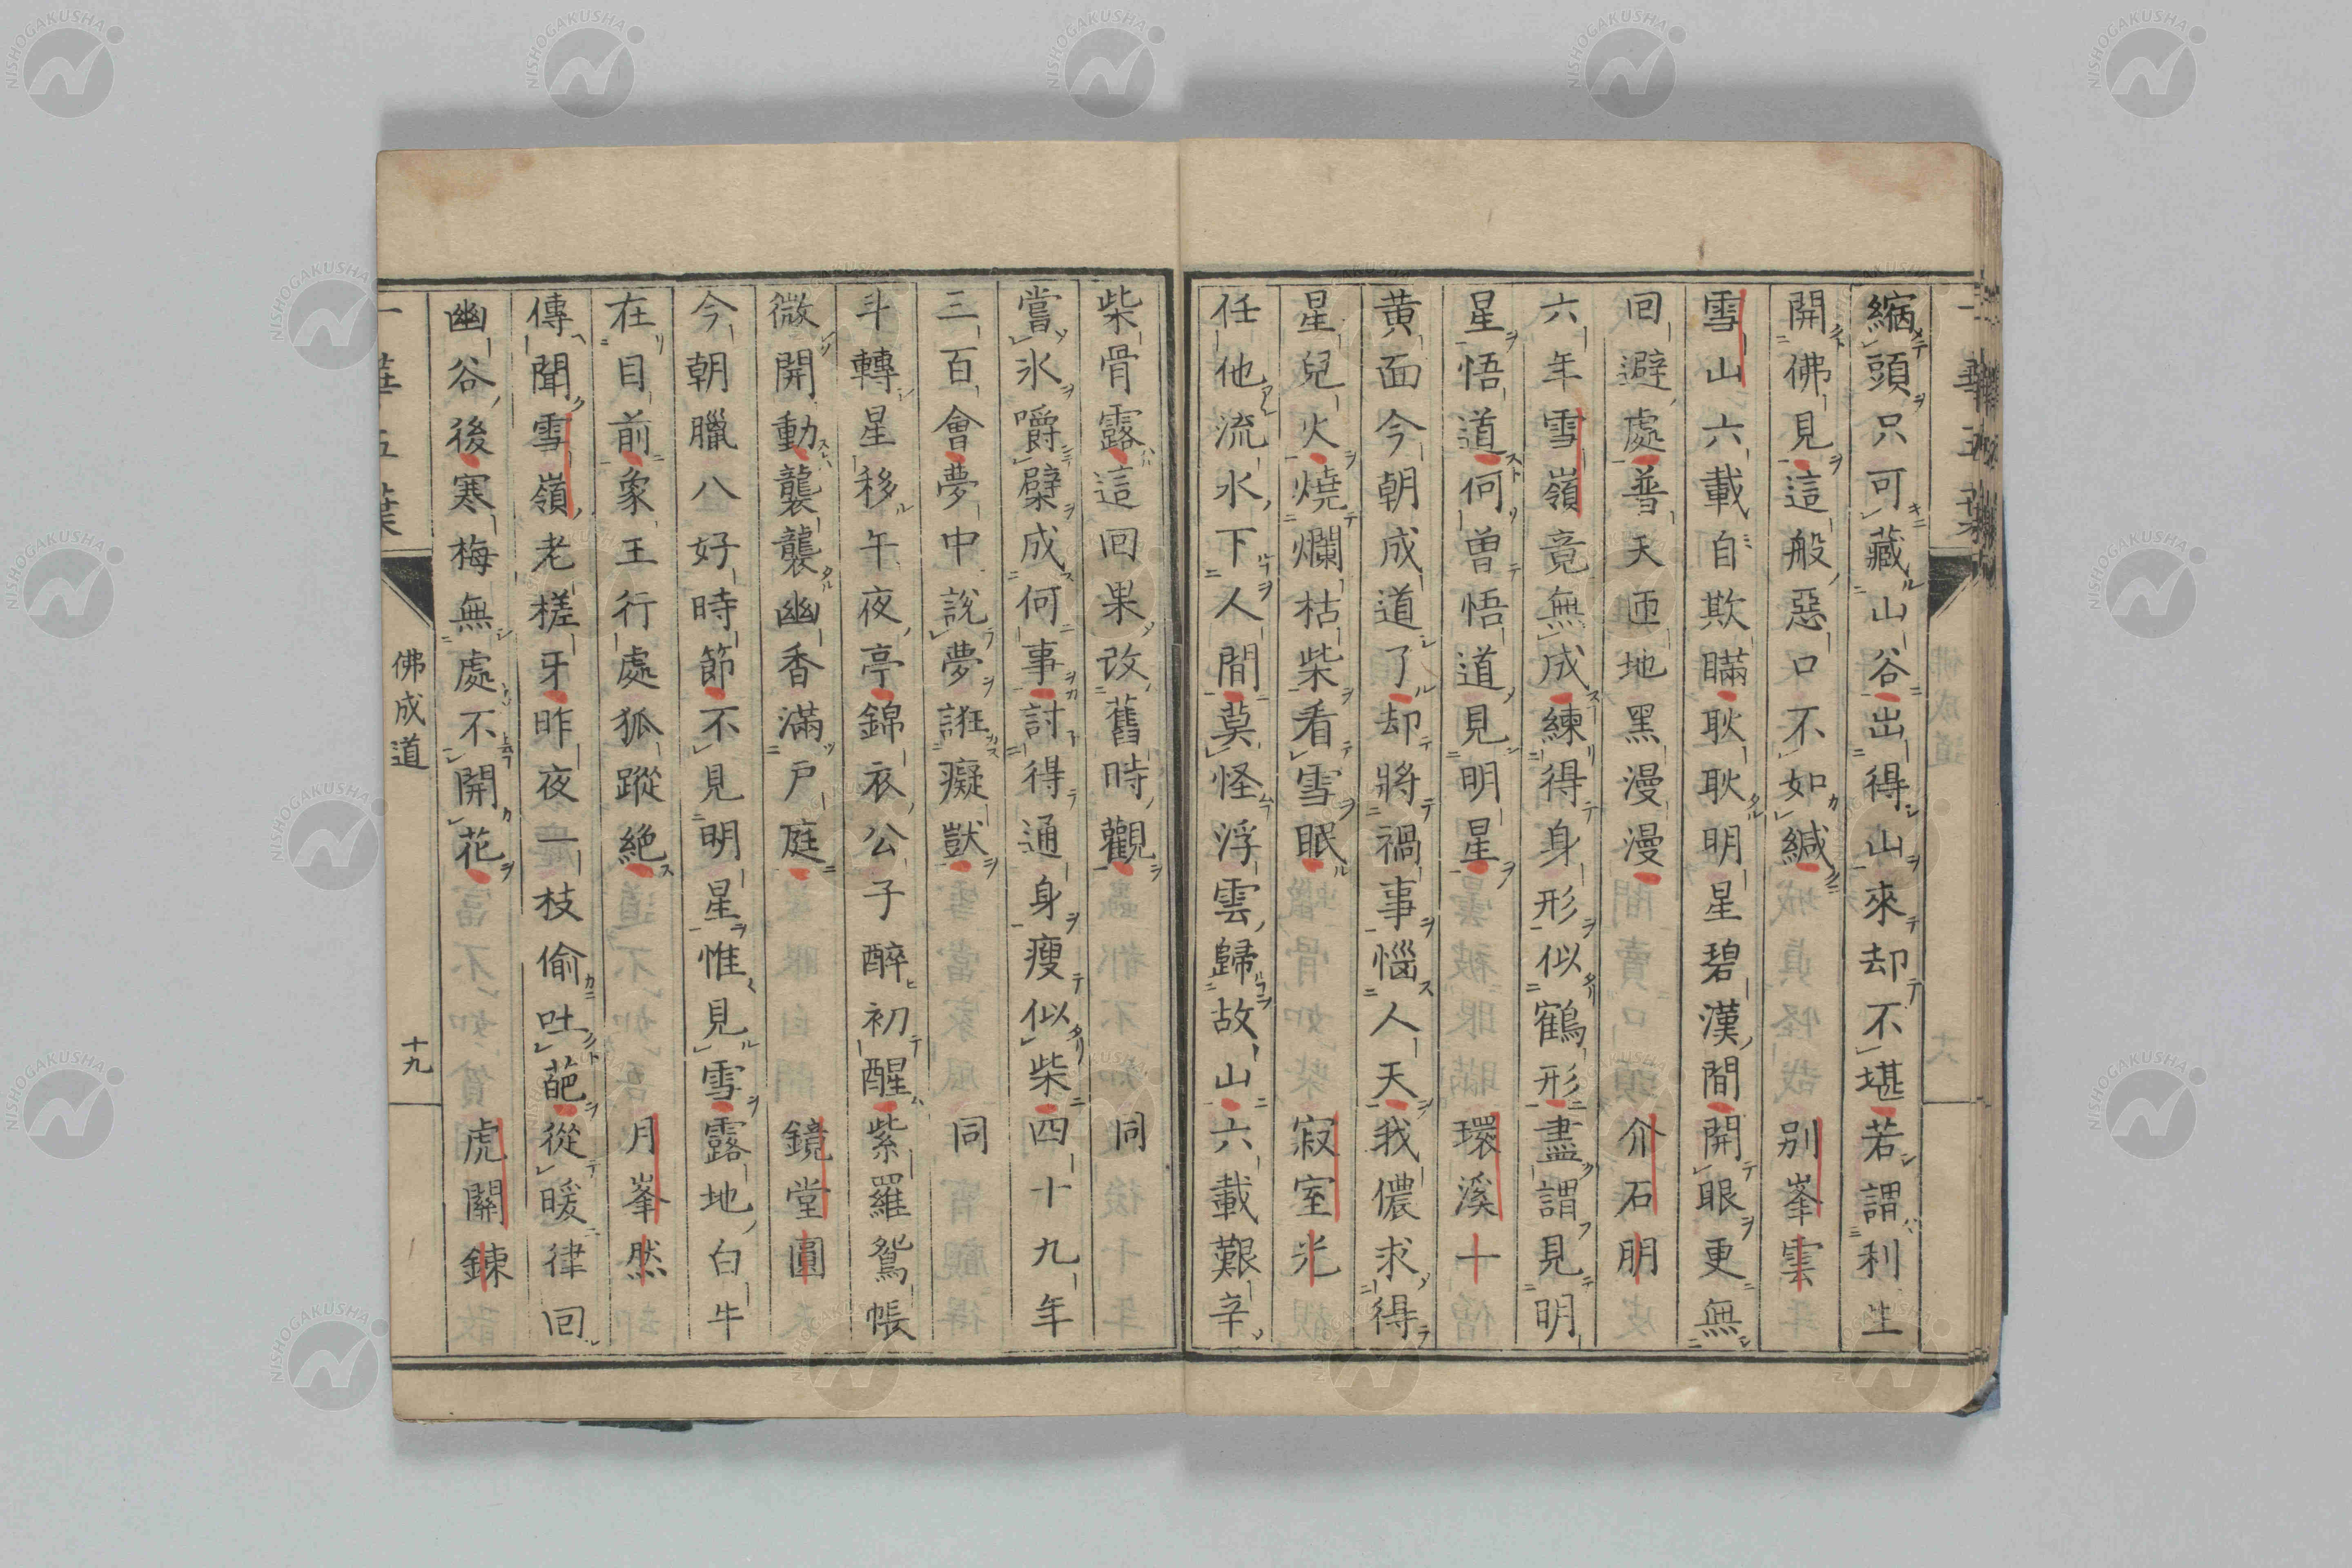 縮頭只可藏山谷出得山來却不堪若謂利生
開佛見這般惡口不如緘 別峯雲
雪山六載自欺瞞耿耿明星碧漢間開眼更無
回避處普天匝地黑漫漫 介石朋
六年雪嶺竟無成練得身形似鶴形盡謂見明
星悟道何曽悟道見明星 環溪一
黄面今朝成道了却將禍事惱人天我儂求得
星兒火燒爛枯柴看雪眠 寂室光
任他流水下人間莫怪浮雲歸故山六載艱辛
柴骨露這回果改舊時觀 同
嘗氷嚼檗成何事討得通身瘦似柴四十九年
三百會夢中說夢誑癡獃 同
斗轉星移午夜亭錦衣公子醉初醒紫羅鴛帳
微開動襲襲幽香滿戸庭 鏡堂圓
今朝臘八好時節不見明星惟見雪露地白牛
在目前象王行處狐蹤絶 月峯然
傳聞雪嶺老槎牙昨夜一枝偷吐葩從暖律回
幽谷後寒梅無處不開花 虎關錬
佛成道
十九